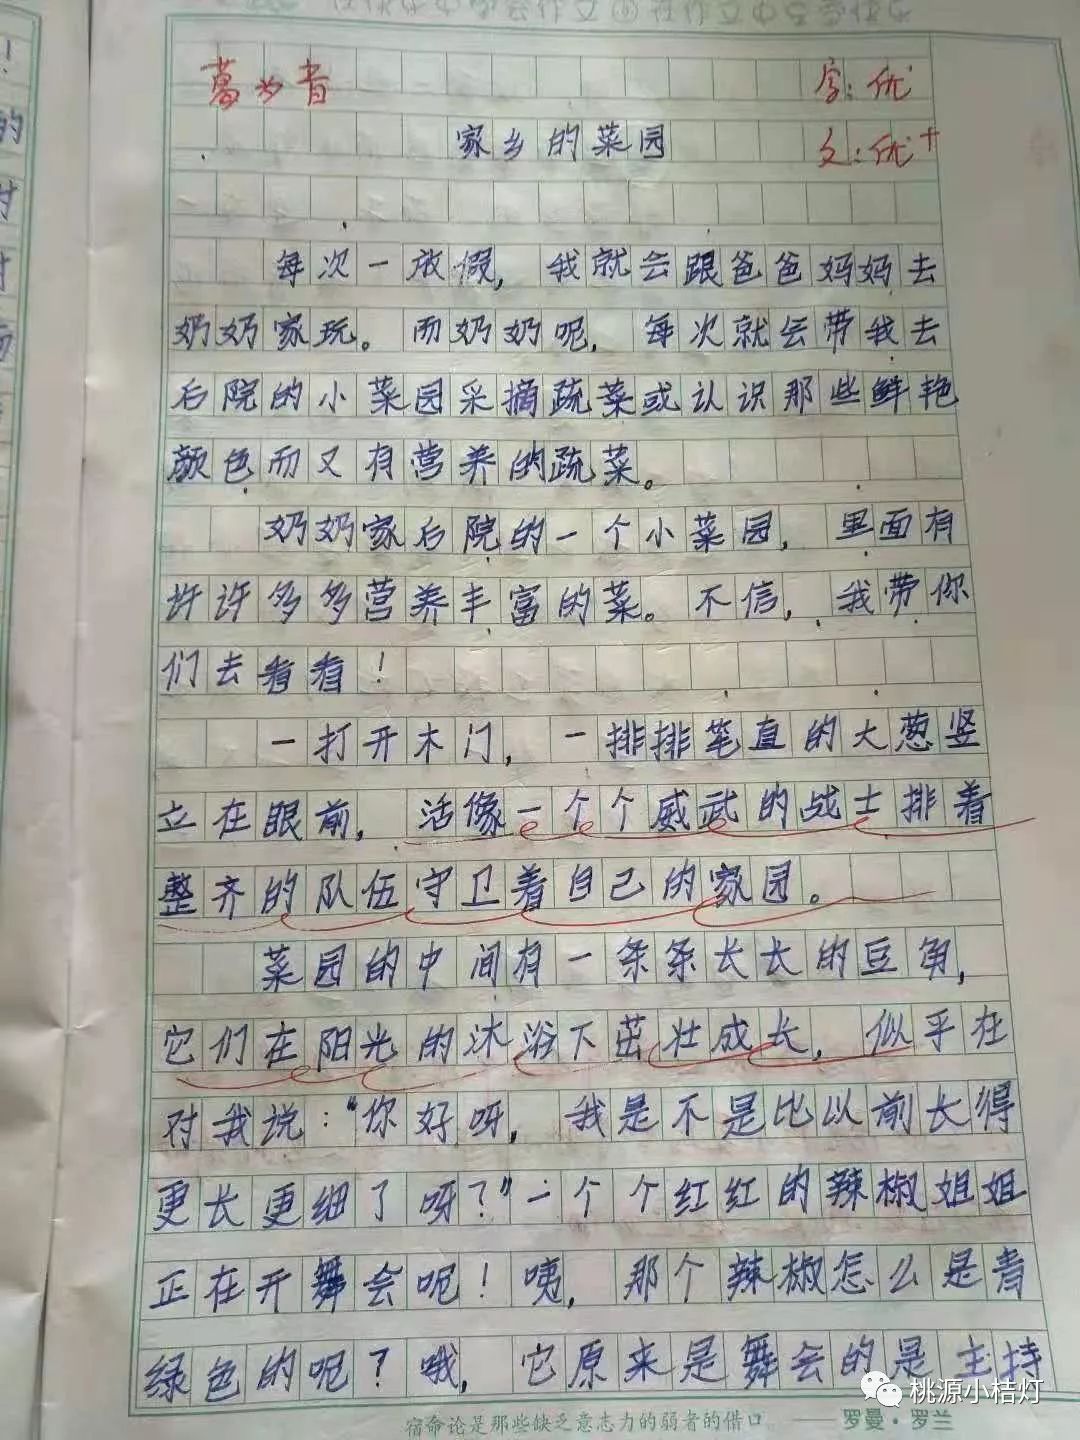 字:优
家乡的菜园
文:优+
每次一放假，我就会跟爸爸妈妈去
奶奶家玩。而奶奶呢，每次就会带我去
后院的小菜园采摘蔬菜或认识那些鲜艳
颜色而又有营养的蔬菜。
奶奶家后院的一个小菜园，里面有
许许多多营养丰富的菜。不信，我带你
们去看看！
一打开木门，一排排笔直的大葱竖
立在眼前，活像一个个威武的战士排着
整齐的队伍守卫着自己的家园。
菜园的中间有一条条长长的豆角，
它们在阳光的沐浴下茁壮成长，似乎在
对我说："你好呀，我是不是比以前长得
更长更细了呀？"一个个红红的辣椒姐姐
正在开舞会呢！咦，那个辣椒怎么是青
绿色的呢？哦，它原来是舞会的是主持
宿命论是那些缺乏意志力的弱者的借口 ——罗曼·罗兰
桃源小桔灯